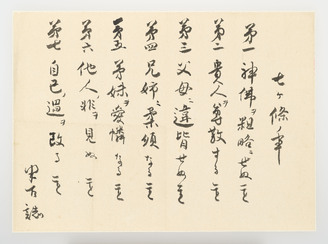 七ヶ條ノ事
第一 神佛ヲ粗略ニせぬ事
第二 貴人ヲ尊敬する事
第三 父母ニ違背せぬ事
第四 兄姉ニ柔順なる事
第五 弟妹ヲ愛憐なる事
第六 他人ノ非ヲ見ぬ事
第七 自己ノ過ヲ改る事